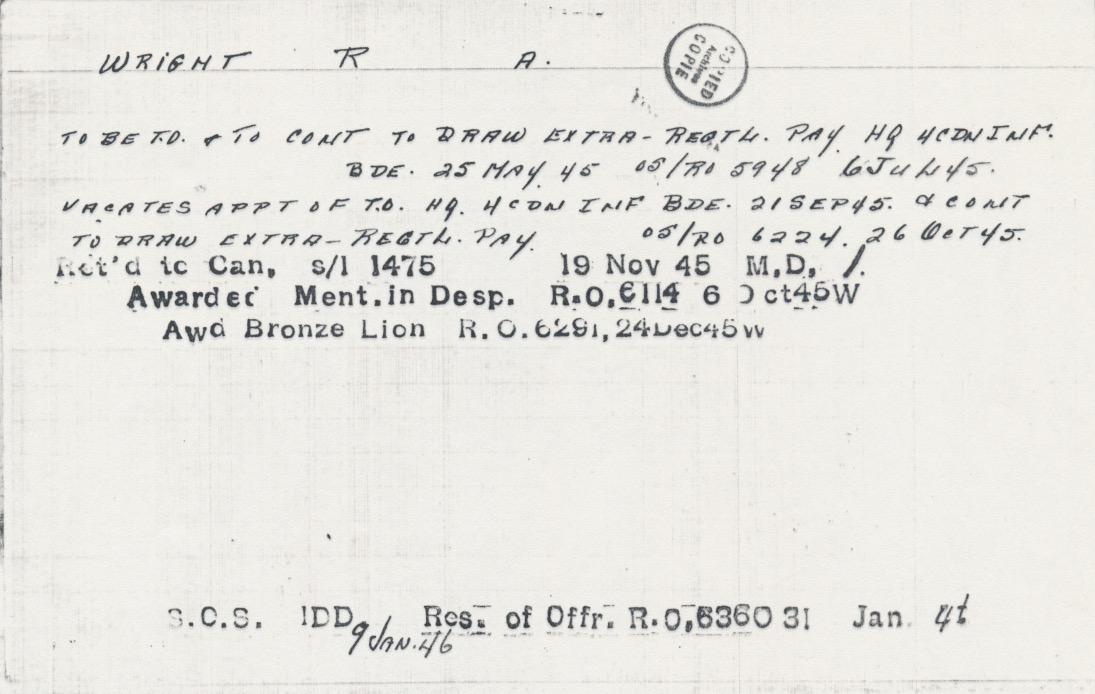 WRIGHT R A.
COPIED
Archives
COPIE
TO BE T.O. & TO CONT TO DRAW EXTRA-REGTL. PAY HQ 4 CDN INF.
BDE. 25 MAY 45 OS/RO 5948 6 JUL 45.
VACATES APPT OF T.O. HQ. 4 CDN INF BDE. 21 SEP 45. & CONT
TO DRAW EXTRA-REGTL. PAY. OS/RO 6224. 26 OCT 45.
Ret'd to Can, s/l 1475 19 Nov 45 M,D, 1.
Awarded Ment.in Desp. R.O,6114 6 Oct45W
Awd Bronze Lion R.O.6291,24Dec45W
S.O.S. IDD, Res. of Offr. R.O,6360 31 Jan. 46
9 JAN. 46